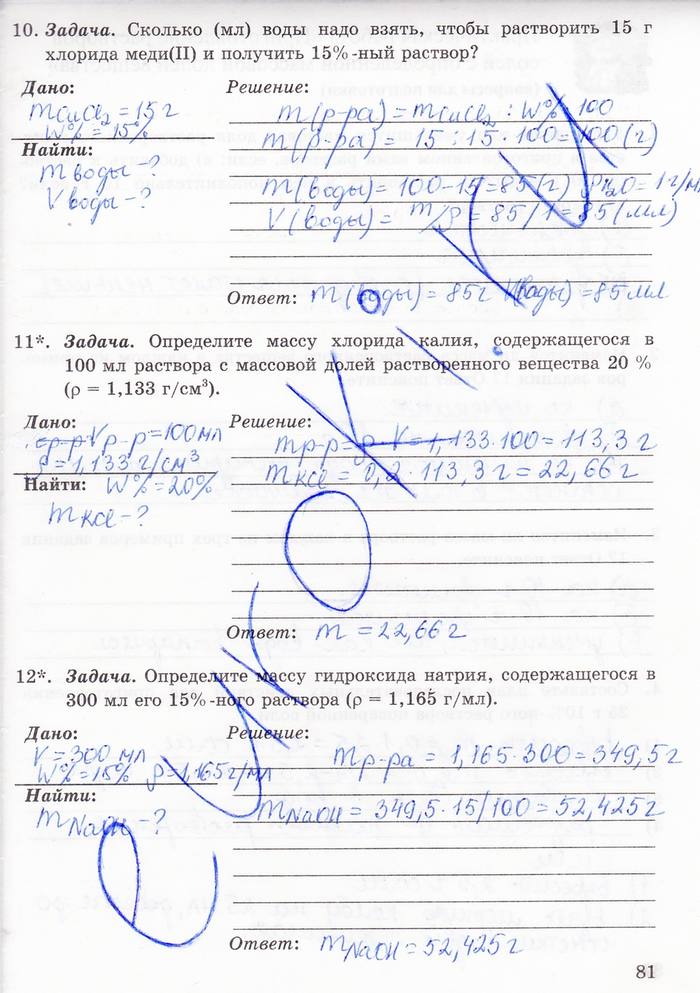 10. Задача. Сколько (мл) воды надо взять, чтобы растворить 15 г
хлорида меди(II) и получить 15%-ный раствор?
Дано:
Решение:
mCuCl₂ = 15 г
W% = 15%
m(р-ра) = mCuCl₂ : W% · 100
m(р-ра) = 15 : 15 · 100 = 100 (г)
Найти:
m воды - ?
V воды - ?
m(воды) = 100 - 15 = 85 (г) ρH₂O = 1 г/м
V (воды) = m/ρ = 85/1 = 85 (мл)
Ответ: m (воды) = 85 г V(воды) = 85 мл
11*. Задача. Определите массу хлорида калия, содержащегося в
100 мл раствора с массовой долей растворенного вещества 20 %
(ρ = 1,133 г/см³).
Дано:
Решение:
Vр-р = 100 мл
ρ = 1,133 г/см³
mр-р = ρ · V = 1,133 · 100 = 113,3 г
Найти: W% = 20%
mKCl = 0,2 · 113,3 г = 22,66 г
mKCl - ?
Ответ: m = 22,66 г
12*. Задача. Определите массу гидроксида натрия, содержащегося в
300 мл его 15%-ного раствора (ρ = 1,165 г/мл).
Дано:
Решение:
V = 300 мл
W% = 15% ρ = 1,165 г/мл
mр-ра = 1,165 · 300 = 349,5 г
Найти:
mNaOH - ?
mNaOH = 349,5 · 15/100 = 52,425 г
Ответ: mNaOH = 52,425 г
81